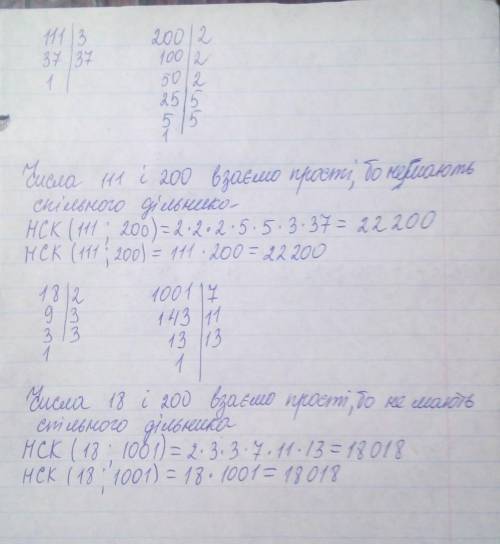 111 | 3 200 | 2
37 | 37 100 | 2
1 50 | 2
25 | 5
5 | 5
1
Числа 111 і 200 взаємо прості, бо не мають
спільного дільника
НСК (111; 200) = 2·2·2·5·5·3·37 = 22200
НСК (111; 200) = 111·200 = 22200
18 | 2 1001 | 7
9 | 3 143 | 11
3 | 3 13 | 13
1 1
Числа 18 і 200 взаємо прості, бо не мають
спільного дільника
НСК (18; 1001) = 2·3·3·7·11·13 = 18018
НСК (18; 1001) = 18·1001 = 18018